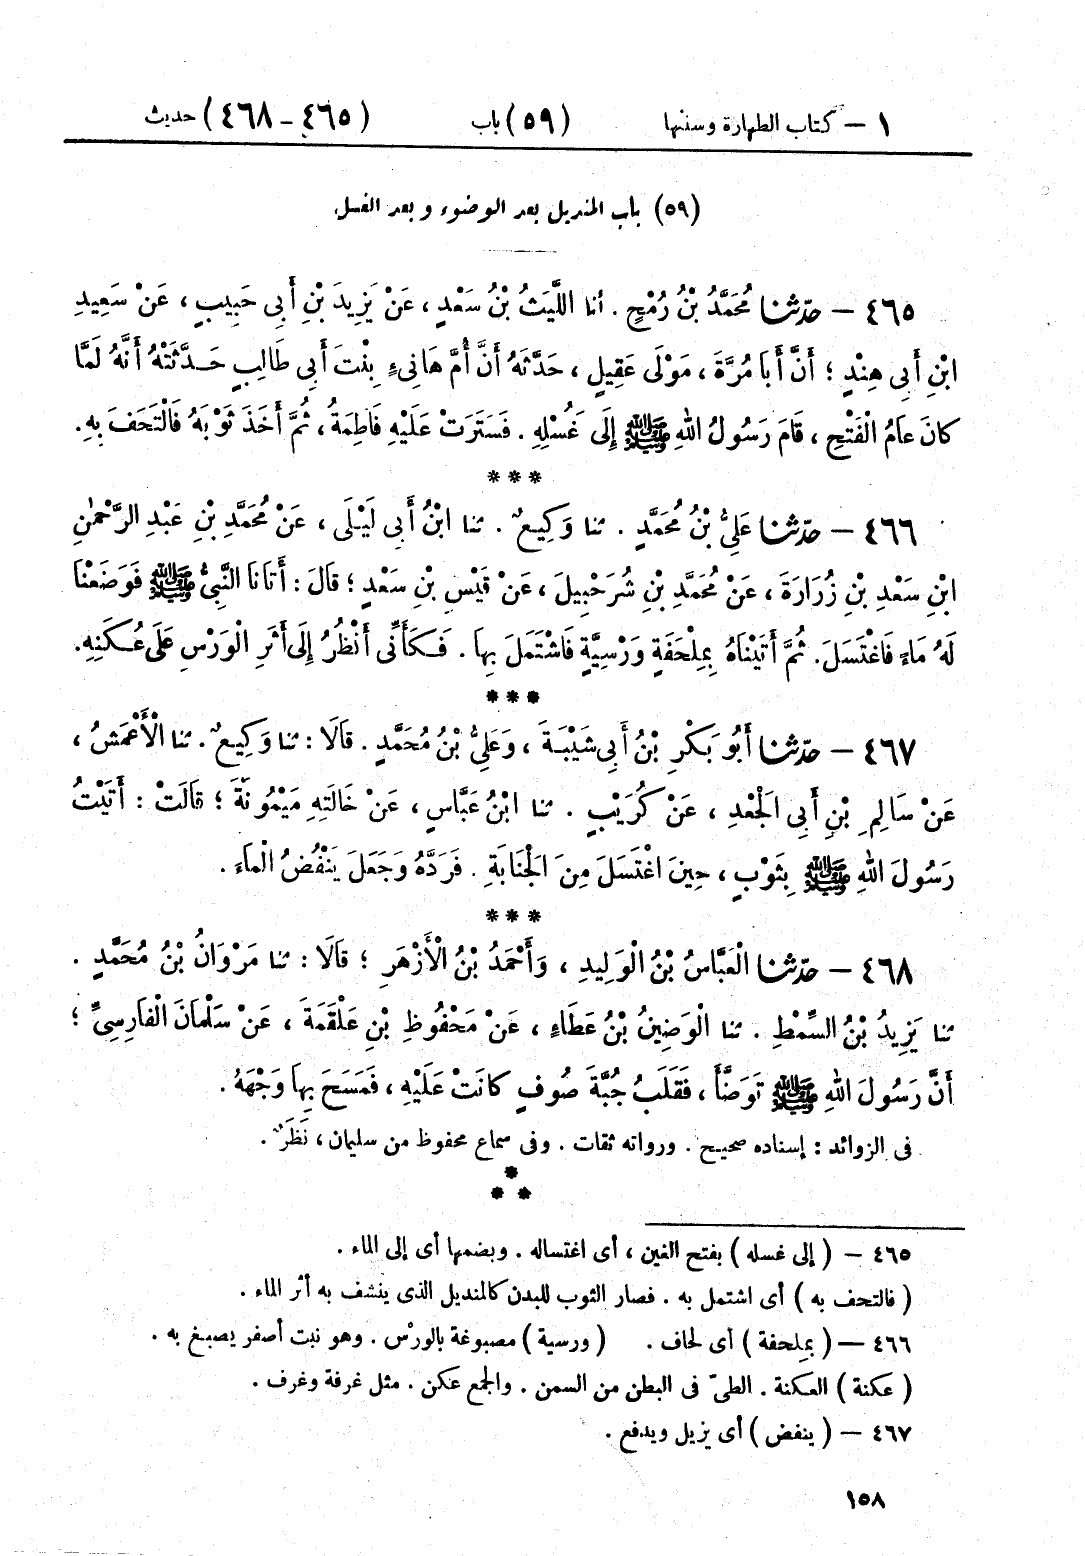 ١ – كتاب الطهارة وسننها (٥٩) باب (٤٦٥ – ٤٦٨) حديث
(٥٩) باب المنديل بعد الوضوء وبعد الغسل
٤٦٥ – حدّثنا مُحَمَّدُ بْنُ رُمْحٍ . أنا اللَّيْثُ بْنُ سَعْدٍ ، عَنْ يَزِيدَ بْنِ أَبِي حَبِيبٍ ، عَنْ سَعِيدِ
ابْنِ أَبِي هِنْدٍ ؛ أَنَّ أَبَا مُرَّةَ ، مَوْلَى عَقِيلٍ ، حَدَّثَهُ أَنَّ أُمَّ هَانِيءٍ بِنْتَ أَبِي طَالِبٍ حَدَّثَتْهُ أَنَّهُ لَمَّا
كانَ عامُ الْفَتْحِ ، قَامَ رَسُولُ اللهِ ﷺ إِلَى غَسْلِهِ . فَسَتَرَتْ عَلَيْهِ فَاطِمَةُ ، ثُمَّ أَخَذَ ثَوْبَهُ فَالْتَحَفَ بِهِ.
***
٤٦٦ – حدّثنا عَلِيُّ بْنُ مُحَمَّدٍ . ثنا وَكِيعٌ . ثنا ابْنُ أَبِي لَيْلَى ، عَنْ مُحَمَّدِ بْنِ عَبْدِ الرَّحْمٰنِ
ابْنِ سَعْدِ بْنِ زُرَارَةَ ، عَنْ مُحَمَّدِ بْنِ شُرَحْبِيلَ ، عَنْ قَيْسِ بْنِ سَعْدٍ ؛ قَالَ : أَتَانَا النَّبِيُّ ﷺ فَوَضَعْنَا
لَهُ مَاءً فَاغْتَسَلَ. ثُمَّ أَتَيْنَاهُ بِمِلْحَفَةٍ وَرْسِيَّةٍ فَاشْتَمَلَ بِهَا . فَكَأَنِّي أَنْظُرُ إِلَى أَثَرِ الْوَرْسِ عَلَى عُكَنِهِ.
***
٤٦٧ – حدّثنا أَبُو بَكْرِ بْنُ أَبِي شَيْبَةَ ، وَعَلِيُّ بْنُ مُحَمَّدٍ . قَالَا : ثنا وَكِيعٌ . ثنا الْأَعْمَشُ ،
عَنْ سَالِمِ بْنِ أَبِي الْجَعْدِ ، عَنْ كُرَيْبٍ . ثنا ابْنُ عَبَّاسٍ ، عَنْ خَالَتِهِ مَيْمُونَةَ ؛ قَالَتْ : أَتَيْتُ
رَسُولَ اللهِ ﷺ بِثَوْبٍ ، حِينَ اغْتَسَلَ مِنَ الْجَنَابَةِ . فَرَدَّهُ وَجَعَلَ يَنْفُضُ الْمَاءَ .
***
٤٦٨ – حدّثنا الْعَبَّاسُ بْنُ الْوَلِيدِ ، وَأَحْمَدُ بْنُ الْأَزْهَرِ ؛ قَالَا : ثنا مَرْوَانُ بْنُ مُحَمَّدٍ .
ثنا يَزِيدُ بْنُ السِّمْطِ . ثنا الْوَضِينُ بْنُ عَطَاءٍ ، عَنْ مَحْفُوظِ بْنِ عَلْقَمَةَ ، عَنْ سَلْمَانَ الْفَارِسِيِّ ؛
أَنَّ رَسُولَ اللهِ ﷺ تَوَضَّأَ ، فَقَلَبَ جُبَّةَ صُوفٍ كانَتْ عَلَيْهِ ، فَمَسَحَ بِهَا وَجْهَهُ .
فى الزوائد : إسناده صحيح . ورواته ثقات . وفى سماع محفوظ من سليمان ، نَظَرٌ .
***
٤٦٥ – ( إلى غسله ) بفتح الغين ، أى اغتساله . وبضمها أى إلى الماء .
( فالتحف به ) أى اشتمل به . فصار الثوب للبدن كالمنديل الذى ينشف به أثر الماء .
٤٦٦ – ( بملحفة ) أى لحاف . ( ورسية ) مصبوغة بالورْس . وهو نبت أصفر يصبغ به .
( عكنة ) العكنة . الطىّ فى البطن من السمن . والجمع عكن . مثل غرفة وغرف .
٤٦٧ – ( ينفض ) أى يزيل ويدفع .
١٥٨